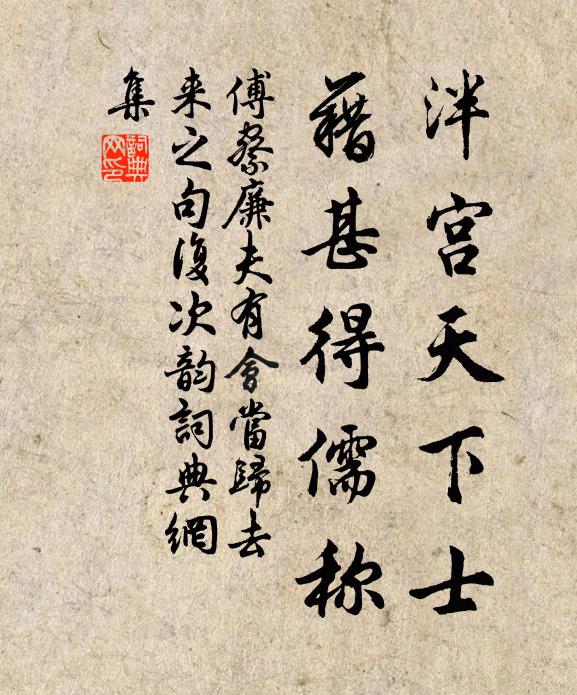 泮宫天下士
藉甚得儒称
傅察廉夫有會當歸去
来之句復次韵詞典網
集
詞典网印